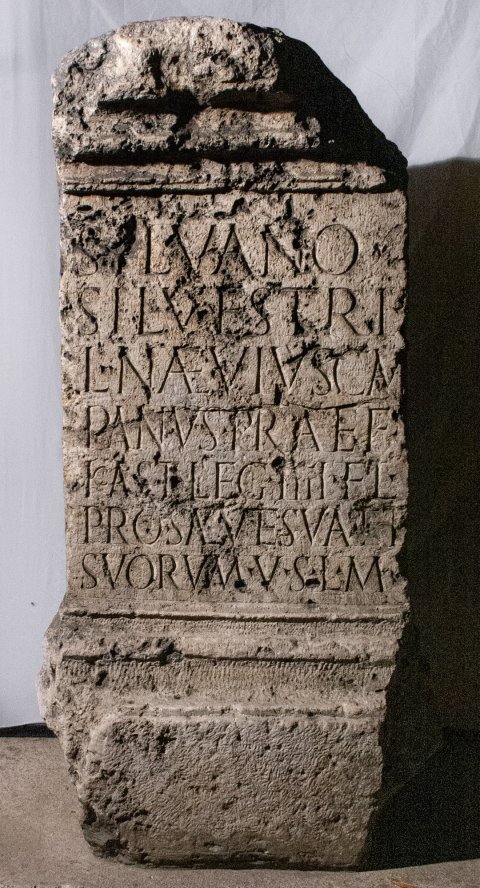 SILVANO
SILVESTRI
L·NÆVIVSCAM
PANVSPRAEF
KAST·LEG·IIII·FL
PROSALVESVAET
SVORVM·V·S·L·M